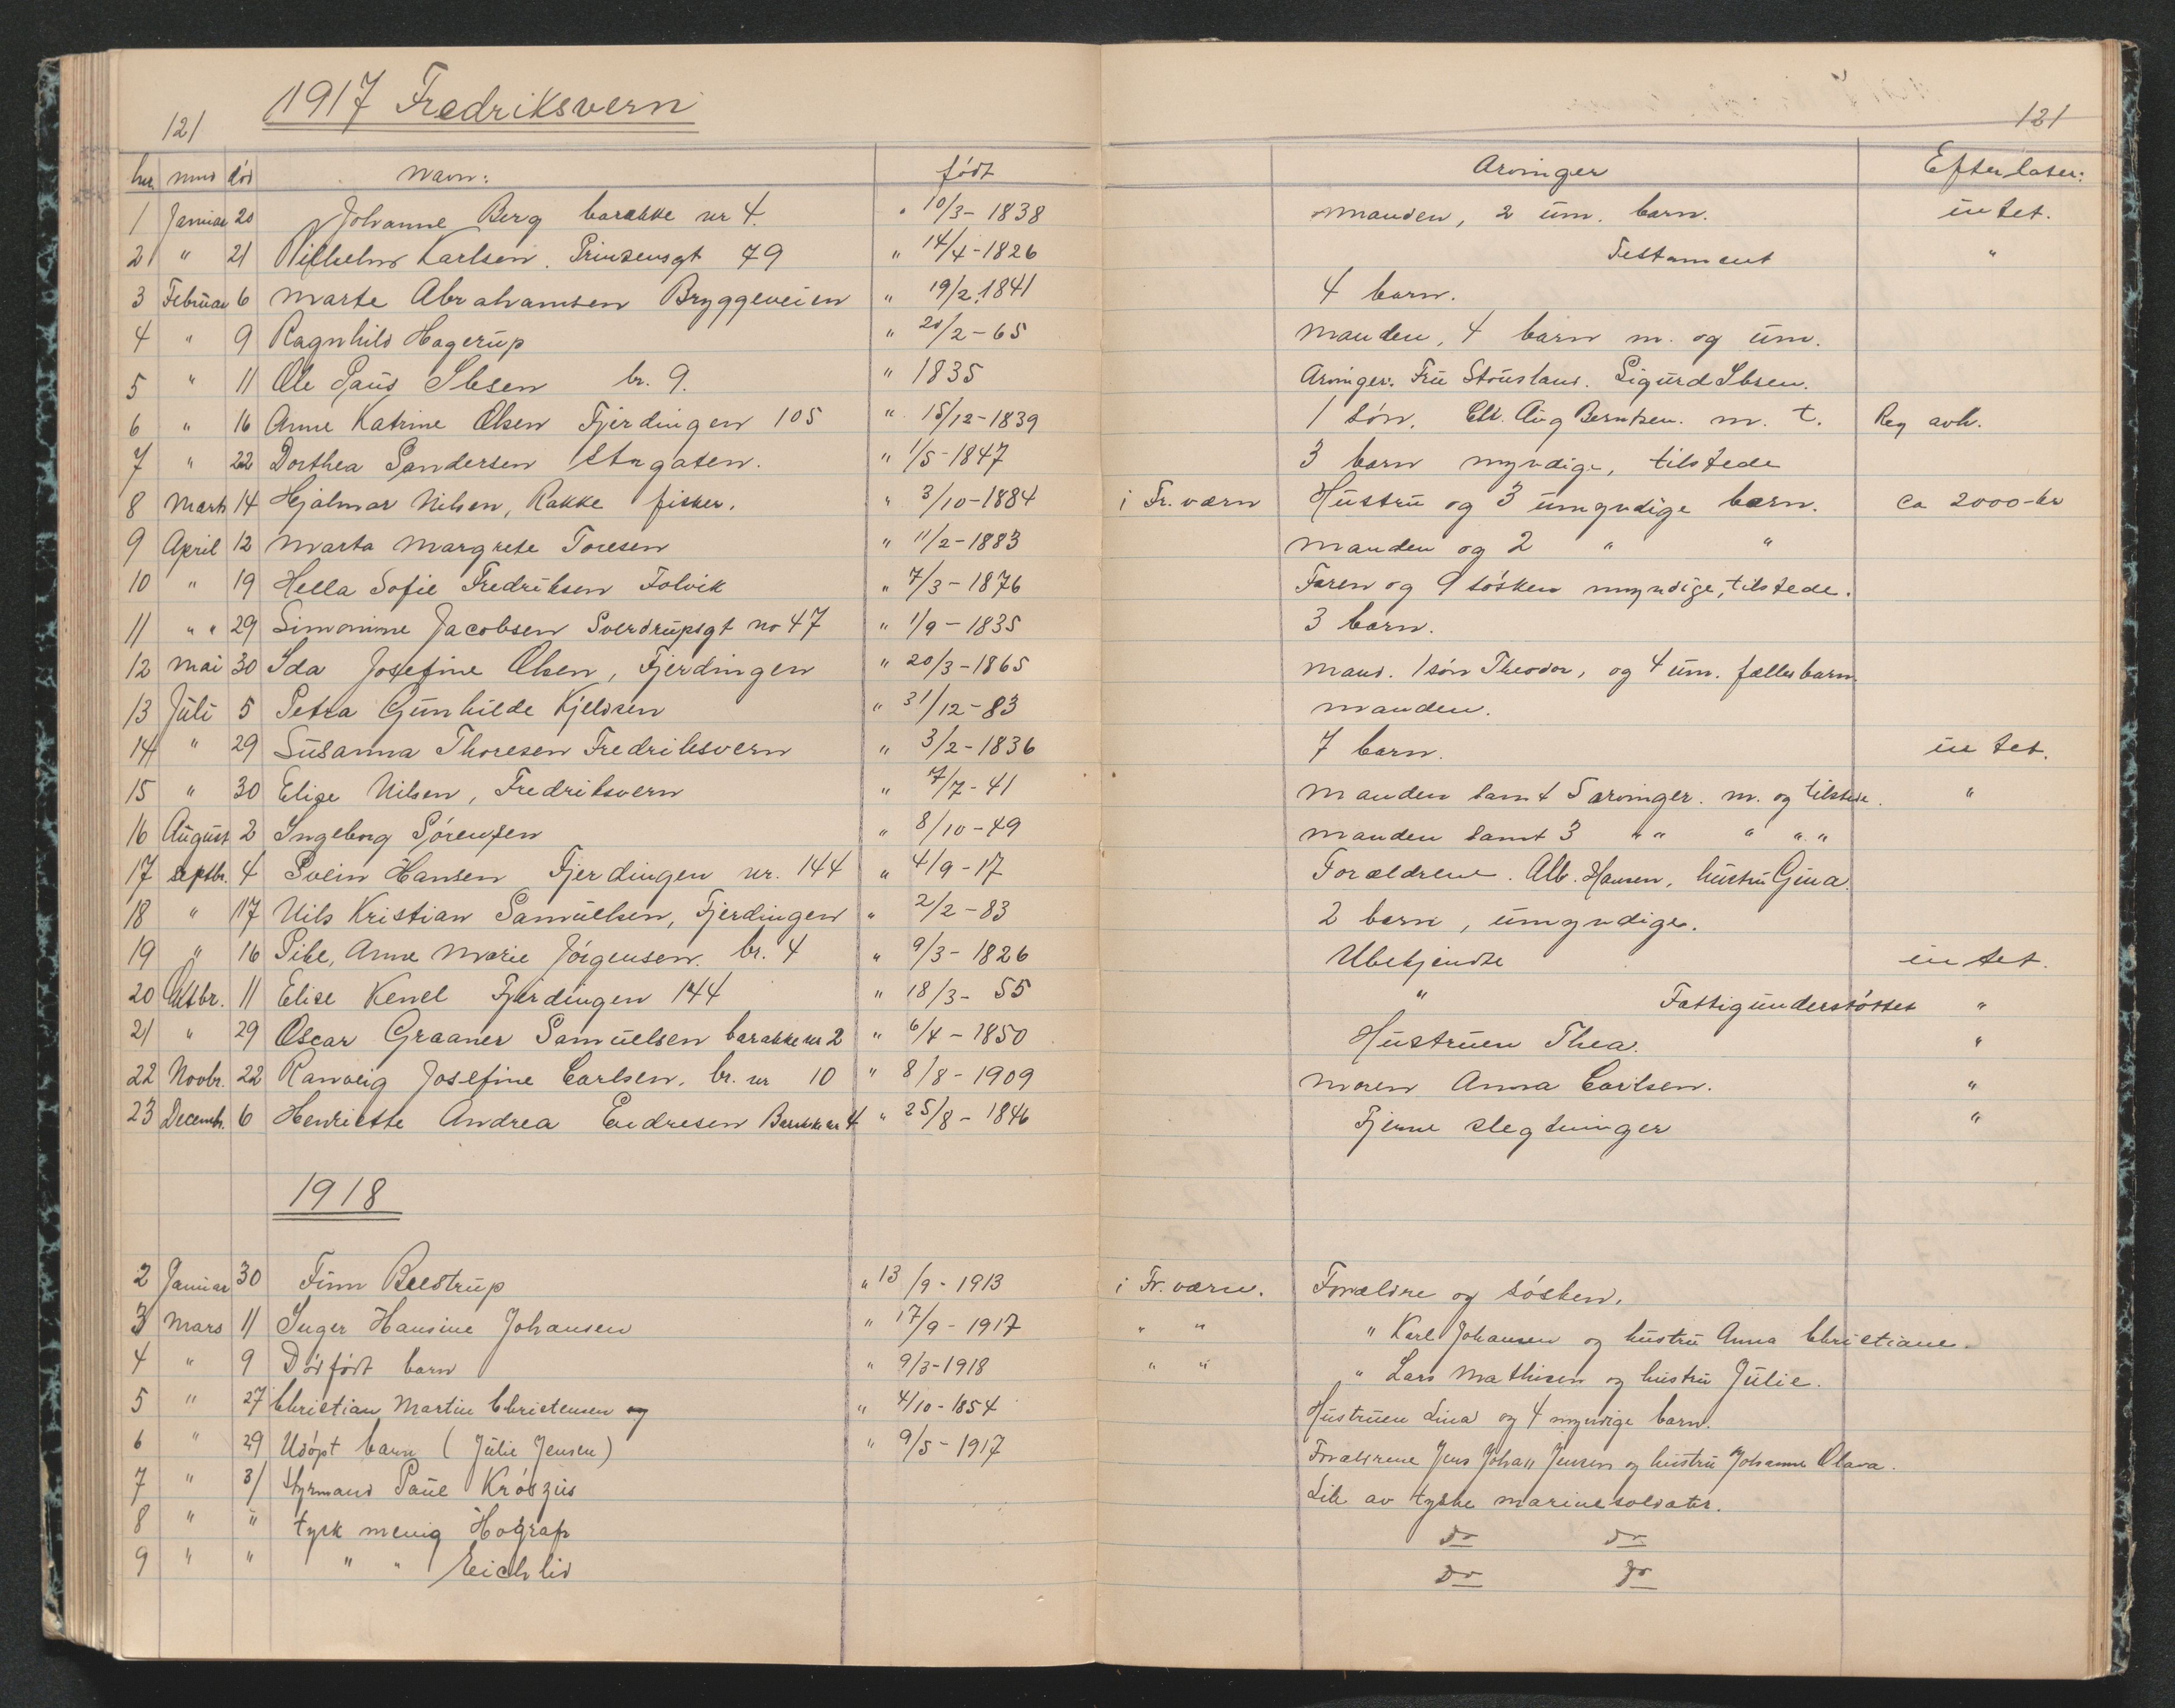 1917 Fredriksvern
121
121
nr. mnd død Navn: født Arvinger Efterlater:
1 Januar 20 Johanne Berg barakke nr 4. " 10/3-1838 manden, 2 um. barn. intet.
2 " 21 Vilhelm Karlsen. Prinsensgt 79 " 14/4-1826 Testament "
3 Februar 6 Marte Abrahamsen Bryggeveien " 19/2 1841 4 barn.
4 " 9 Ragnhild Hagerup " 20/2-65 manden, 4 barn m. og um.
5 " 11 Ole Paus Ibsen br. 9. " 1835 Arvinger: Fru Stousland. Sigurd Ibsen.
6 " 16 Anne Katrine Olsen Fjerdingen 105 " 15/12-1839 1 søn. Aug Berntsen. m. t. Reg avh.
7 " 22 Dorthea Sandersen Storgaten. " 1/5-1847 3 barn myndige, tilstede
8 Marts 14 Hjalmar Nilsen, Rakke fisker. " 3/10-1884 i Fr. værn Hustru og 3 umyndige barn. ca 2000-kr
9 April 12 Marta Margrete Toresen " 11/2-1883 Manden og 2 " "
10 " 19 Hella Sofie Fredriksen Folvik " 7/3-1876 Faren og 9 søsken myndige, tilstede.
11 " " 29 Simonine Jacobsen Sverdrupsgt no 47 " 1/9-1835 3 barn.
12 Mai 30 Ida Josefine Olsen, Fjerdingen " 20/3-1865 Mand. 1 søn Theodor, og 4 um. fælles barn.
13 Juli 5 Petra Gunhilde Kjeldsen " 31/12-83 manden.
14 " 29 Susanna Thoresen Fredriksvern " 3/2-1836 7 barn. intet.
15 " 30 Elise Nilsen, Fredriksvern " 7/7-41 Manden samt 5 arvinger. m. og tilstede. "
16 August 2 Ingeborg Sørensen " 8/10-49 manden samt 3 " " " " "
17 septbr. 4 Svein Hansen Fjerdingen nr. 144 " 4/9-17 Forældrene. Alb. Hansen, hustru Gina.
18 " 17 Nils Kristian Samuelsen, Fjerdingen " 2/2-83 2 barn, umyndige.
19 " 16 Pike, Anne Marie Jørgensen. br. 4 " 9/3-1826 Ubekjendte intet.
20 Oktbr. 11 Elise Kenel Fjerdingen 144 " 18/3-55 " Fattigunderstøttet "
21 " 29 Oscar Graaner Samuelsen barakke nr 2 " 6/4-1850 Hustruen Thea. "
22 Novbr. 22 Ranveig Josefine Carlsen. br. nr 10 " 8/8-1909 Moren Anna Carlsen. "
23 Decembr. 6 Henriette Andrea Endresen Barakke nr 4 " 25/8-1846 Fjerne slegtninger "
1918
2 Januar 30 Finn " 13/9-1913 i Fr. værn. Forældre og søsken.
3 Mars 11 Inger Hansine Johansen " 17/9-1917 " " " Karl Johansen og hustru Anna Christiane.
4 " 9 Dødfødt barn " 9/3-1918 " " " Lars Mathisen og hustru Julie.
5 " 27 Christian Martin Christensen og " 4/10-1854 Hustruen Lina og 4 myndige barn.
6 " 29 Udøpt barn (Julie Jensen) " 9/5-1917 Forældrene Jens Johan Jensen og hustru Johanne Olava.
7 " 31 Styrmand Paul Lik av tyske marinesoldater.
8 " " tysk menig do do
9 " " " " do do